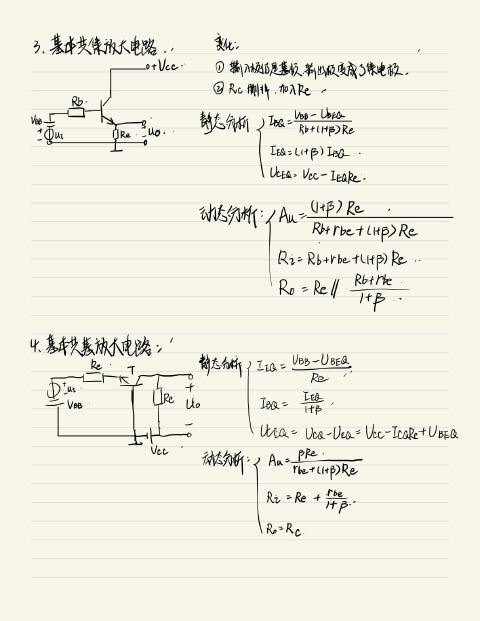 3. 基本共集放大电路.
变化:
① 输入极仍是基极, 输出极变成了集电极.
② Rc 删掉, 加入Re
+Vcc
Rb
VBB
+
UI
-
Re
Uo
静态分析
IBQ = (VBB - UBEQ) / (Rb+(1+β)Re)
IEQ = (1+β) IBQ
UCEQ = Vcc - IEQRe.
动态分析:
Au = (1+β)Re / (Rb+rbe+(1+β)Re)
Ri = Rb+rbe+(1+β)Re
Ro = Re // (Rb+rbe) / (1+β)
4. 基本共基放大电路:
Re
T
UI
VBB
Rc
+
Uo
-
Vcc
静态分析
IEQ = (VBB - UBEQ) / Re
IBQ = IEQ / (1+β)
UCEQ = UCQ - UEQ = Vcc - ICQRc + UBEQ
动态分析:
Au = βRc / (rbe+(1+β)Re)
Ri = Re + rbe / (1+β)
Ro = Rc